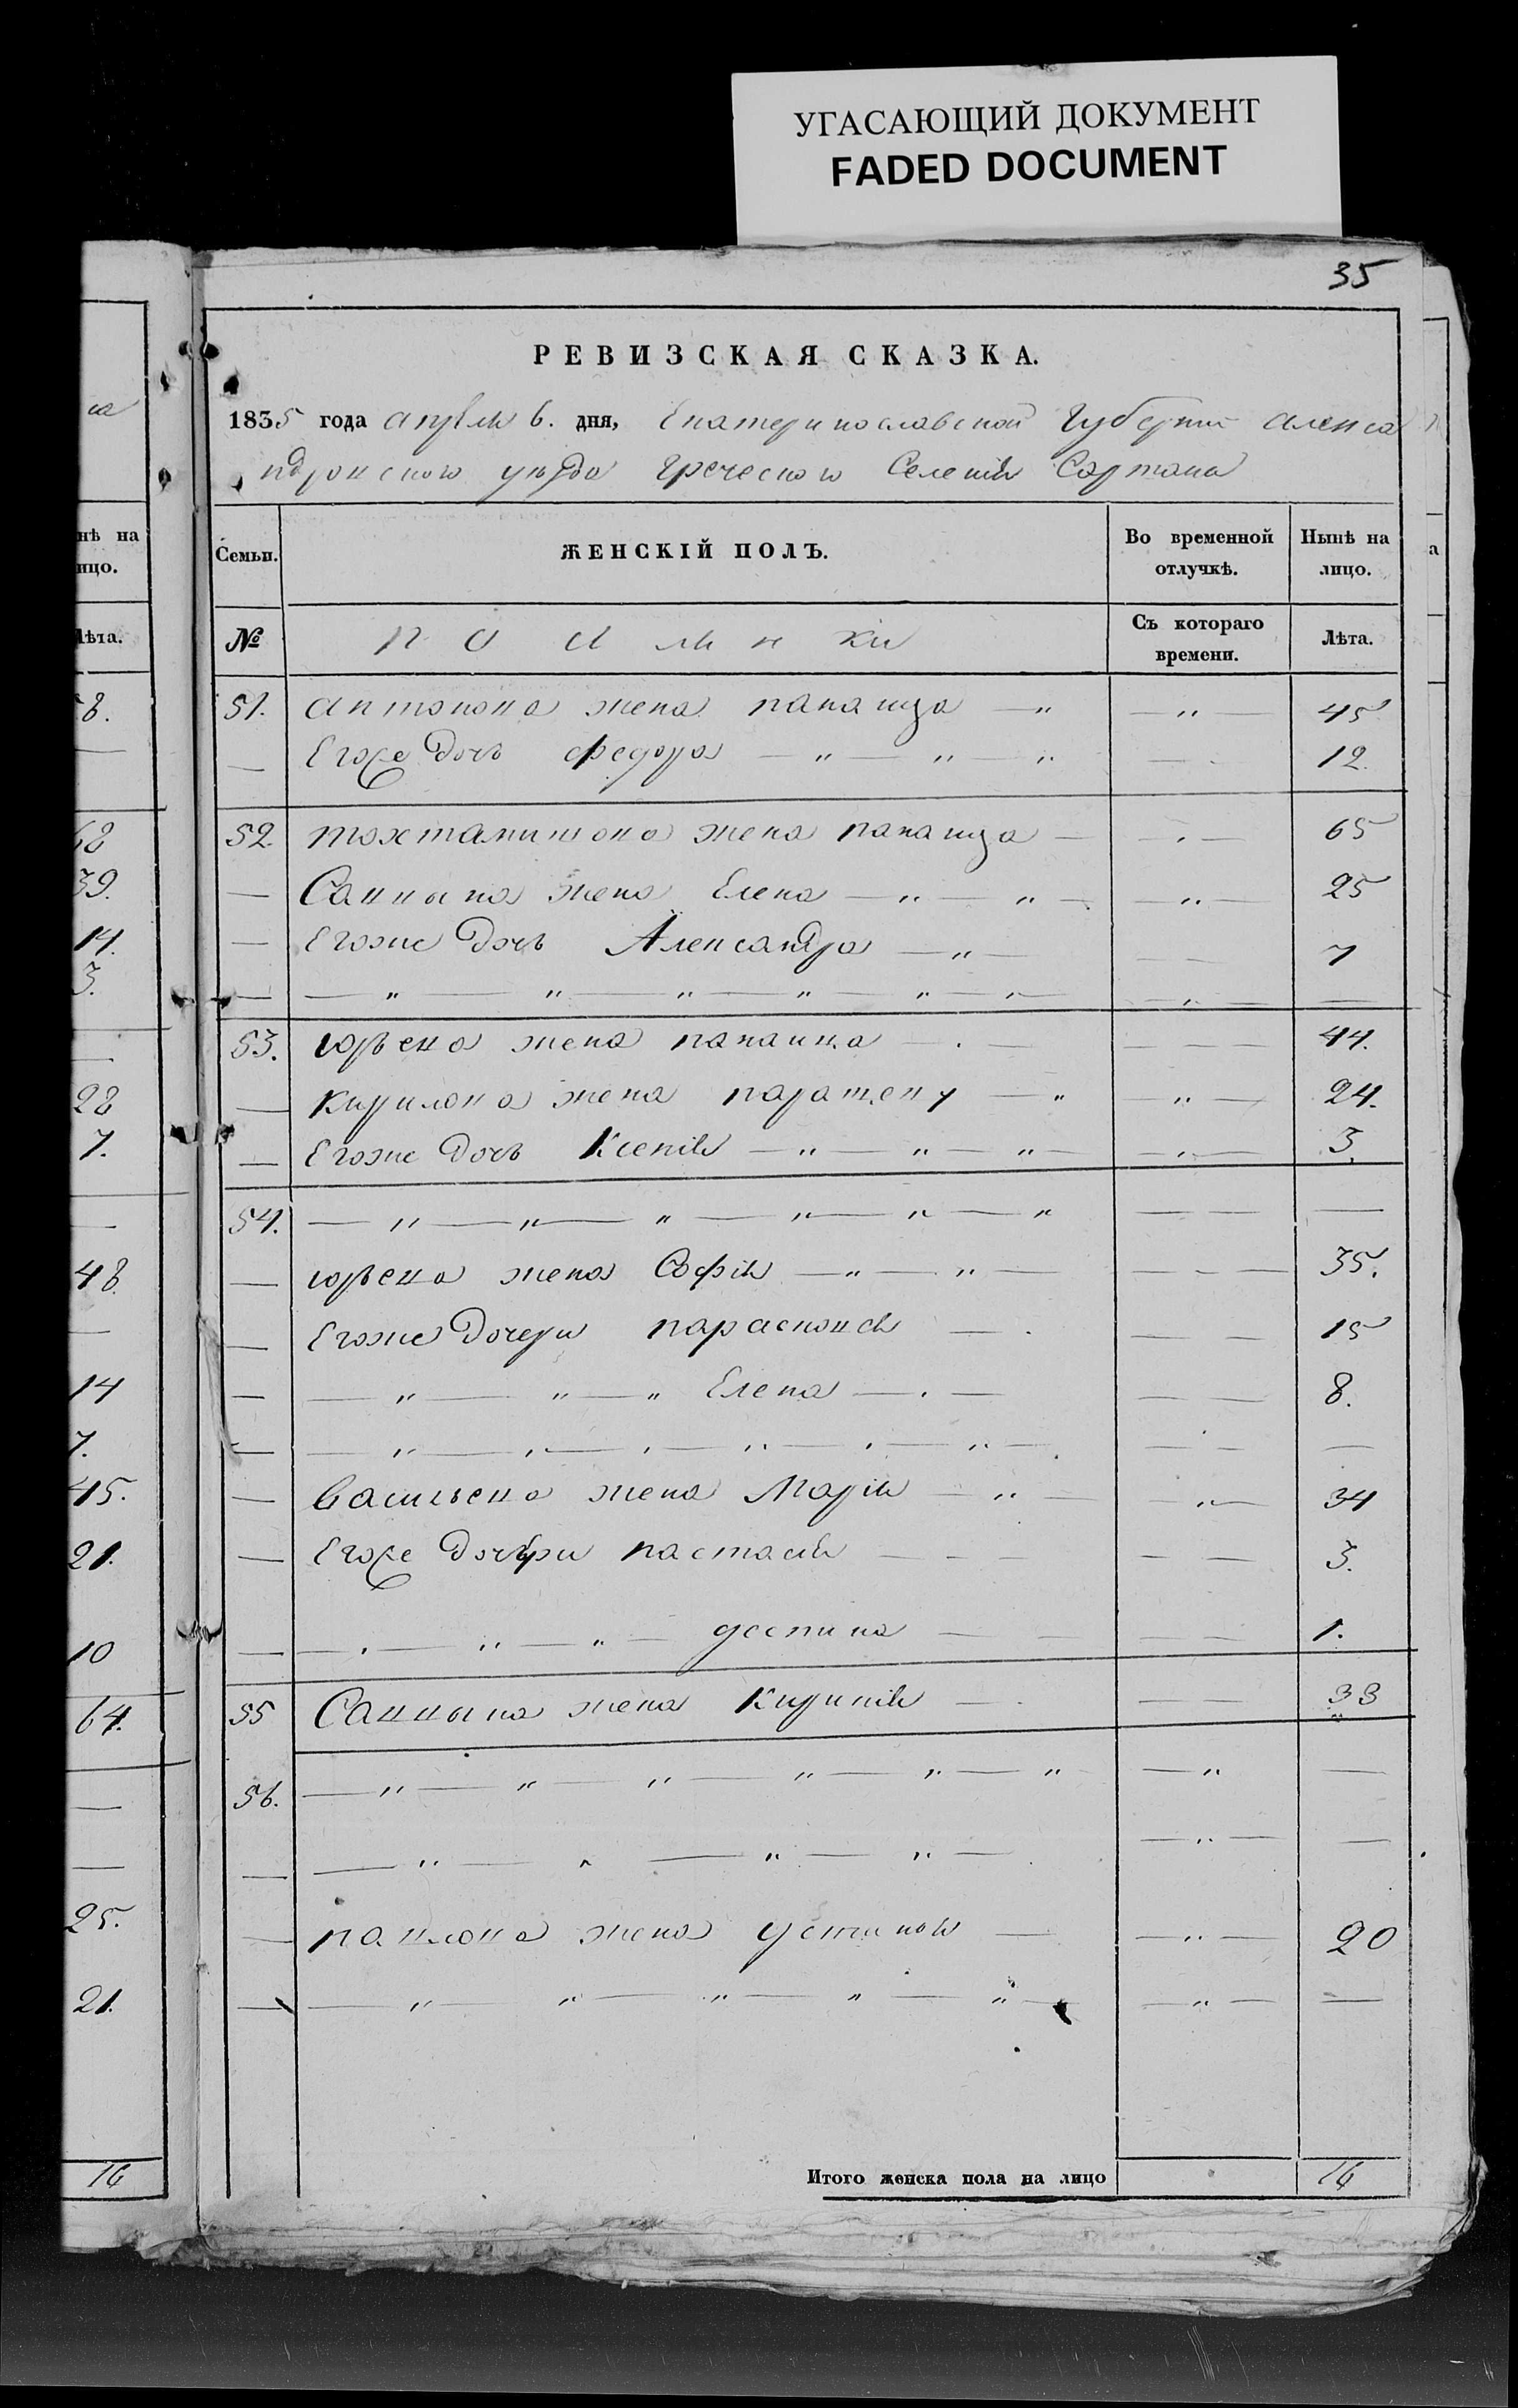 УГАСАЮЩИЙ ДОКУМЕНТ
FADED DOCUMENT
35
РЕВИЗСКАЯ СКАЗКА.
1835 года апреля 6. дня, Екатеринославской Губернии Алекса
ндровского уезда Греческого Селенія Сартана
Семьи. ЖЕНСКІЙ ПОЛЪ. Во временной отлучкѣ. Нынѣ на лицо.
№ Съ котораго времени. Лѣта.
51. Антонова жена папаица — „ — „ — 45
— Егоже Дочь федора — „ — „ — „ — 12.
52. тохтамишова жена папаица — 65
— Саввына жена Елена — „ — „ — — „ — 25
— Егоже Дочь Александра — „ — — — 7
— — „ — „ — „ — „ — „ — „ — — „ — —
53. юрьева жена папаица — . — — — — 44.
— кирилова жена парашеву — „ — „ — 24.
— Егоже Дочь Ксенія — „ — „ — „ — — „ — 3.
54. — „ — „ — „ — „ — „ — „ — — —
— юрьева жена Софія — „ — „ — — — — 35.
— Егоже Дочери парасковія — . — — 15
— — „ — „ — „ Елена — . — — — 8.
— — „ — „ — „ — „ — „ — „ — — — —
— Васильева жена Марія — „ — — „ — 34
— Егоже Дочери настасія — — — — — 3.
— — „ — „ — „ — деспина — — — — 1.
55 Саввына жена Киринія — . — 33
56. — „ — „ — „ — „ — „ — „ — — „ —
— — „ — „ — „ — „ — — „ — —
— павлова жена устинія — — „ — 20
— — „ — „ — „ — „ — „ — — „ — —
Итого женска пола на лицо 16
нѣ на
ицо.
Лѣта.
58.
62
39.
14.
3.
28
7.
48.
14
7.
45.
21.
10
64.
25.
21.
16